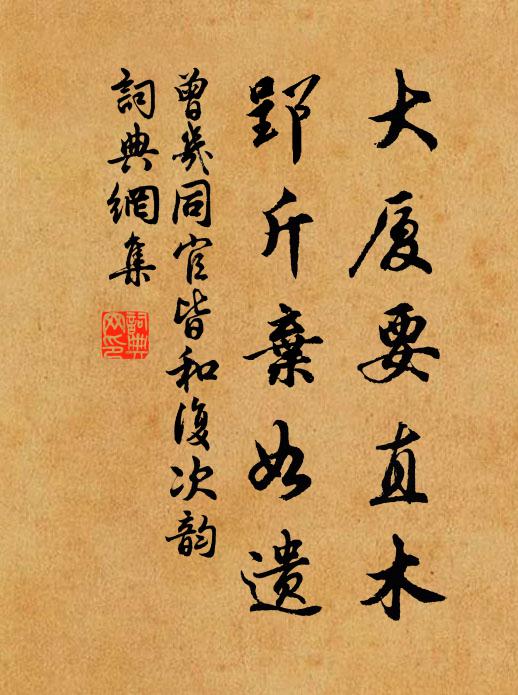 大厦要直木
郢斤棄如遺
曾幾同官皆和復次韵
詞典網集
詞典網印